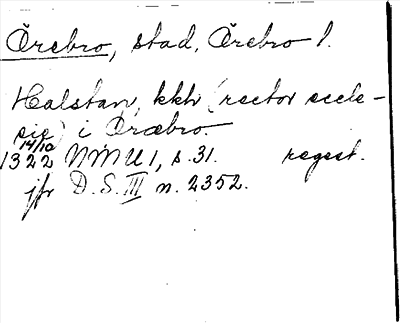 Örebro, stad, Örebro l.
Halstan, kkh (rector eccle-
sie) i Öræbro.
14/10
1322 NMU 1, s. 31. regest.
jfr D.S. III n. 2352.